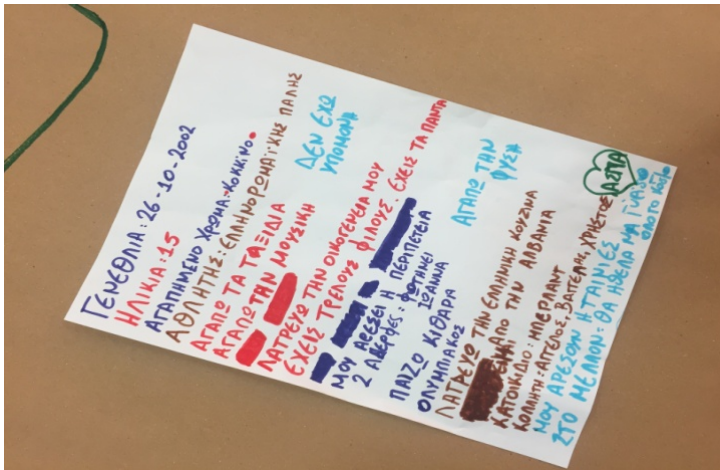 ΓΕΝΕΘΛΙΑ: 26-10-2002
ΗΛΙΚΙΑ: 15
ΑΓΑΠΗΜΕΝΟ ΧΡΩΜΑ: ΚΟΚΚΙΝΟ
ΑΘΛΗΤΗΣ: ΕΛΛΗΝΟΡΩΜΑΪΚΗΣ ΠΑΛΗΣ
ΑΓΑΠΩ ΤΑ ΤΑΞΙΔΙΑ
ΔΕΝ ΕΧΩ
ΥΠΟΜΟΝΗ
ΑΓΑΠΩ ΤΗΝ ΜΟΥΣΙΚΗ
ΛΑΤΡΕΥΩ ΤΗΝ ΟΙΚΟΓΕΝΕΙΑ ΜΟΥ
ΕΧΕΙΣ ΤΡΕΛΟΥΣ ΦΙΛΟΥΣ. ΕΧΕΙΣ ΤΑ ΠΑΝΤΑ
ΜΟΥ ΑΡΕΣΕΙ Η ΠΕΡΙΠΕΤΕΙΑ
2 ΑΔΕΡΦΕΣ: ΦΩΤΗΝΕΙ
ΙΩΑΝΝΑ
ΑΓΑΠΩ ΤΗΝ
ΦΥΣΗ
ΠΑΙΖΩ ΚΙΘΑΡΑ
ΟΛΥΜΠΙΑΚΟΣ
ΛΑΤΡΕΥΩ ΤΗΝ ΕΛΛΗΝΙΚΗ ΚΟΥΖΙΝΑ
ΑΠΟ ΤΗΝ ΑΛΒΑΝΙΑ
ΚΑΤΟΙΚΙΔΙΟ: ΜΠΕΡΛΑΝΤ
ΚΟΛΛΗΤΗ: ΑΓΓΕΛΟΣ, ΒΑΓΓΕΛΗΣ, ΧΡΗΣΤΟΣ
ΑΣΠΑ
ΜΟΥ ΑΡΕΣΟΥΝ Η ΤΑΙΝΙΕΣ
ΣΤΟ ΜΕΛΛΟΝ: ΘΑ ΗΘΕΛΑ ΝΑ ΓΥΡΙΣΩ
ΟΛΟ ΤΟ